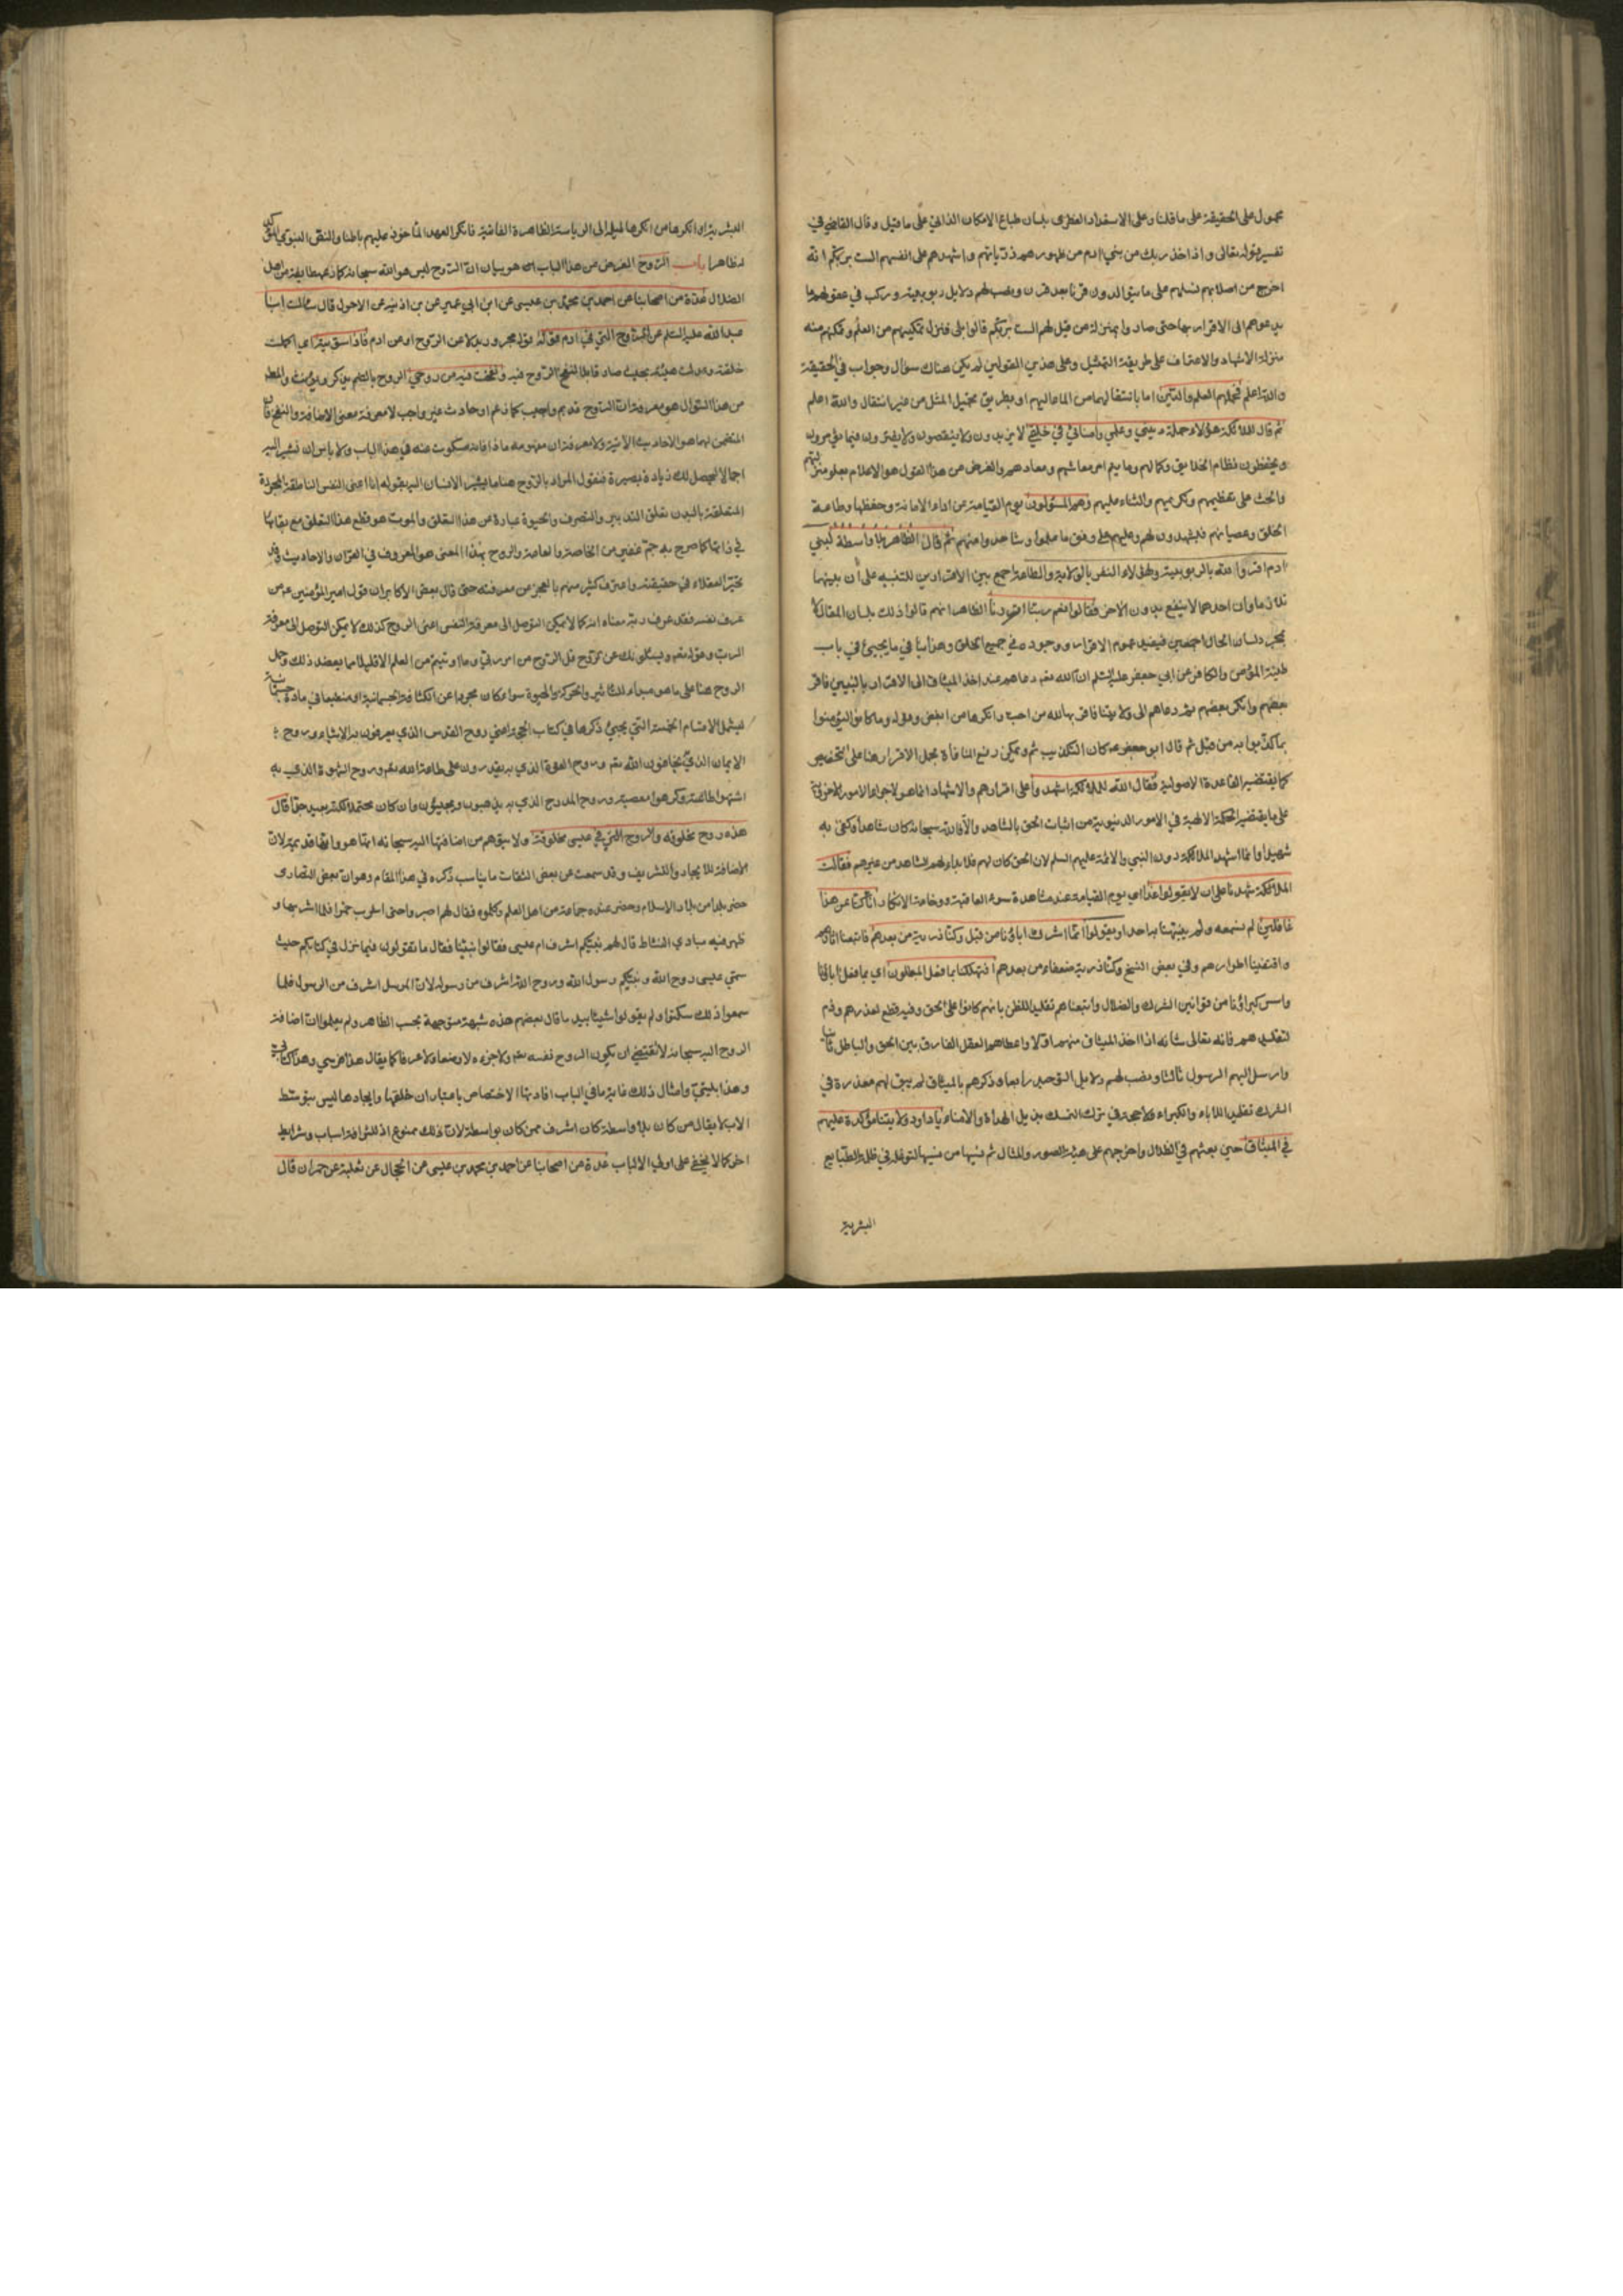 محمول على الحقيقة على ما قلنا وعلى الاستعداد الفطرى بلسان طباع الامكان الذاتي على ما قيل وقال القاضي في
تفسير قوله تعالى واذ اخذ ربك من بني ادم من ظهورهم ذرياتهم واشهدهم على انفسهم الست بربكم انه
اخرج من اصلابهم نسلهم على ما يتوالدون قرنا بعد قرن ونصب لهم دلايل ربوبيته وركب في عقولهم ما
يدعوهم الى الاقرار بها حتى صاروا بمنزلة من قيل لهم الست بربكم قالوا بلى فنزل تمكينهم من العلم وتمكنهم منه
منزلة الاشهاد والاعتراف على طريقة التمثيل وعلى هذين القولين لم يكن هناك سؤال وجواب في الحقيقة
والله اعلم فحملهم العلم والدين اما بانتقالهما من الماء اليهم او بطريق تحميل المثل من غير انتقال والله اعلم
ثم قال للملائكة هؤلاء حملة ديني وعلمي وامنائي في خلقي لا يزيدون ولا ينقصون ولا يفترون فيما يؤمرون
ويحفظون نظام الخلايق وكمالهم وما يتم امر معاشهم ومعادهم والغرض من هذا القول هو الاعلام بعلو منزلتهم
والحث على تعظيمهم وتكريمهم والثناء عليهم وهم المسئولون يوم القيامة عن اداء الامانة وحفظها وطاعة
الخلق وعصيانهم فيشهدون لهم وعليهم على وفق ما علموا وشاهدوا منهم ثم قال الظاهر بلا واسطة لبني
ادم اقروا لله بالربوبية ولهؤلاء النفر بالولاية والطاعة جمع بين الاقرارين للتنبيه على أن بينهما
تلازما وان احدهما لا ينفع بدون الاخر فقالوا نعم ربنا اقررنا الظاهر انهم قالوا ذلك بلسان المقال لا
بمجرد لسان الحال اجمعين فيفيد عموم الاقرار ووجوده في جميع الخلق وهذا ينافي ما يجيئ في باب
طينة المؤمن والكافر عن ابي جعفر عليه السلم ان الله تعم دعاهم عند اخذ الميثاق الى الاقرار بالنبيين فاقر
بعضهم وانكر بعضهم ثم دعاهم الى ولايتنا فاقر بها لله من احب وانكرها من ابغض وهو قوله وما كانوا ليؤمنوا
بما كذبوا به من قبل ثم قال ابو جعفر ع كان التكذيب ثم ويمكن رفع المنافاة بحمل الاقرار هنا على التخصيص
كما يقتضيه القاعدة الاصولية فقال الله للملائكة اشهدوا على اقرارهم والاشهاد انما هو لاجراء الامور الاخروية
على ما يقتضيه الحكمة الالهية في الامور الدنيوية من اثبات الحق بالشاهد والا فالله سبحانه كان شاهدا وكفى به
شهيدا وانما اشهد الملائكة دون النبي والائمة عليهم السلم لان الحق كان لهم فلا بد لهم الشاهد من غيرهم فقالت
الملائكة شهدنا على ان لا يقولوا غدا اي يوم القيامة عند مشاهدة سوء العاقبة ووخامة الانكار انا كنا عن هذا
غافلين لم نسمعه ولم ينبهنا به احد او يقولوا انما اشرك اباؤنا من قبل وكنا ذرية من بعدهم فاتبعنا اثارهم
واقتفينا اطوارهم وفي بعض النسخ وكنا ذرية ضعفاء من بعدهم افتهلكنا بما فعل المبطلون اي بما فعل اباؤنا
واسس كبراؤنا من قوانين الشرك والضلال واتبعناهم تقليدا للظن بانهم كانوا على الحق وفيه قطع لعذرهم وذم
لتقليدهم فانه تعالى شانه اذا اخذ الميثاق منهم اولا واعطاهم العقل الفارق بين الحق والباطل ثانيا
وارسل اليهم الرسول ثالثا ونصب لهم دلايل التوحيد رابعا وذكرهم بالميثاق لم يبق لهم معذرة في
الشرك تقليدا للاباء والكبراء ولا حجة في ترك التمسك بذيل الهداة والامناء يا داود ولايتنا مؤكدة عليهم
في الميثاق حين بعثهم في الظلال واخرجهم على هيئة الصور والمثال ثم نسيها من نسيها لتوغله في ظلمة الطبايع
البشرية
البشرية او انكرها من انكرها لميله الى الرياسة الظاهرة الفانية فانكر العهد المأخوذ عليهم باطنا والنص النبوي المؤكد
له ظاهرا باب الروح الغرض من هذا الباب هو بيان ان الروح ليس هو الله سبحانه كما زعم طايفة من اهل
الضلال عدة من اصحابنا عن احمد بن محمد بن عيسى عن ابن ابي عمير عن بن اذينه عن الاحول قال سالت ابا
عبد الله عليه السلم عن الروح التي في ادم قوله قوله مجرور بدلا عن الروح او عن ادم فاذا سويته اي اكملت
خلقته وعدلت هيئته بحيث صار قابلا لنفخ الروح فيه ونفخت فيه من روحي الروح بالضم يذكر ويؤنث والمطلوب
من هذا السؤال هو معرفة ان الروح قديم واجب كما زعم او حادث غير واجب لا معرفة معنى الاضافة والنفخ فان
المتضمن لهما هو الاحاديث الآتية ولا معرفة ان مفهومه ما ذا فانه مسكوت عنه في هذا الباب ولا باس ان نشير اليه
اجمالا ليحصل لك زيادة بصيرة فنقول المراد بالروح هنا ما يشير الانسان اليه بقوله انا اعنى النفس الناطقة المجردة
المتعلقة بالبدن تعلق التدبير والتصرف والحيوة عبارة عن هذا التعلق والموت هو قطع هذا التعلق مع بقائها
في ذاتها كما صرح به جم غفير من الخاصة والعامة والروح بهذا المعنى هو المعروف في القران والاحاديث وقد
تحير العقلاء في حقيقته واعترف كثير منهم بالعجز عن معرفته حتى قال بعض الاكابر ان قول امير المؤمنين ع من
عرف نفسه فقد عرف ربه معناه انه كما لا يمكن التوصل الى معرفة النفس اعنى الروح كذلك لا يمكن التوصل الى معرفة
الرب وقوله تعم ويسئلونك عن الروح قل الروح من امر ربي وما اوتيتم من العلم الا قليلا مما يعضد ذلك وحمل
الروح هنا على ما هو مبداء للتاثير والحركة والحيوة سواء كان مجردا عن الكثافة الجسمانية او منطبعا في مادة جسمانية
ليشمل الاقسام الخمسة التي يجيئ ذكرها في كتاب الحجة اعني روح القدس الذي يعرفون به الاشياء وروح
الايمان الذي يخافون الله تعم وروح القوة الذي به يقدرون على طاعة الله تعم وروح الشهوة الذي به
اشتهوا طاعته وكرهوا معصيته وروح المدرج الذي به يذهبون ويجيئون وان كان محتملا لكنه بعيد جدا قال
هذه روح مخلوقه والروح التي في عيسى مخلوقة ولا يتوهم من اضافتها اليه سبحانه انها هو وانها قديمة لان
الاضافة للايجاد والتشريف وقد سمعت عن بعض الثقات ما يناسب ذكره في هذا المقام وهو ان بعض النصارى
حضر بلدا من بلاد الاسلام وحضر عنده جماعة من اهل العلم وكلموه فقال لهم اصبروا حتى اشرب خمرا فلما شربها و
ظهر فيه مبادي النشاط قال لهم نبيكم اشرف ام عيسى فقالوا نبينا فقال ما تقولون فيما نزل في كتابكم حيث
سمي عيسى روح الله ونبيكم رسول الله وروح الله اشرف من رسوله لان المرسل اشرف من الرسول فلما
سمعوا ذلك سكتوا ولم يقولوا شيئا بيد ما قال بعضهم هذه شبهة متوجهة بحسب الظاهر ولم يعلموا ان اضافة
الروح اليه سبحانه لا تقتضي ان يكون الروح نفسه تعم ولا جزءه لا وضعا ولا عرفا كما يقال هذا فرسي وهذا كتابي
وهذا بيتي وامثال ذلك غاية ما في الباب افادتها الاختصاص باعتبار ان خلقها وايجادها ليس بتوسط
الاب لا يقال من كان بلا واسطة كان اشرف ممن كان بواسطة لان ذلك ممنوع اذ للشرافة اسباب وشرايط
اخر كما لا يخفى على اولي الالباب عدة من اصحابنا عن احمد بن محمد بن عيسى عن الحجال عن ثعلبة عن حمران قال